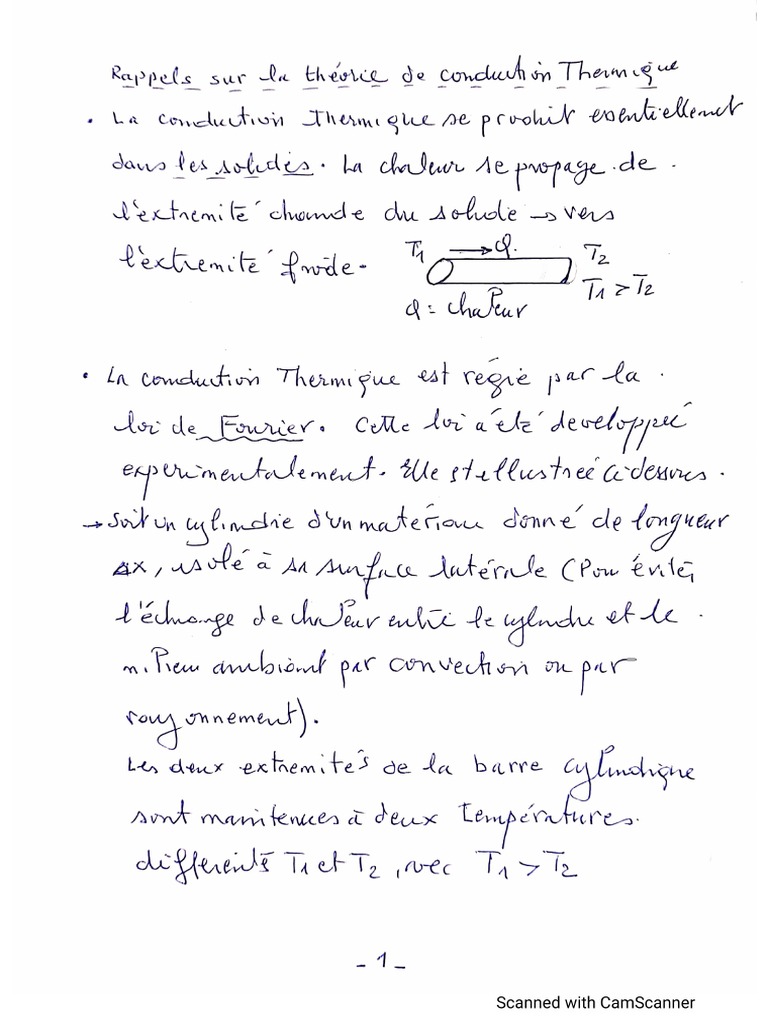 Rappels sur la théorie de conduction Thermique
• La conduction Thermique se produit essentiellement
dans les solides. La chaleur se propage de
l'extremité chaude du solide → vers
l'extremité froide.
T1 → φ. T2
T1 > T2
φ = chaleur
• La conduction Thermique est régie par la
loi de Fourier. Cette loi a été developpée
experimentalement. Elle est illustreé ci-dessous.
→ Soit un cylindre d'un matériau donné de longueur
Δx, isolé à sa surface latérale (Pour éviter
l'échange de chaleur entre le cylindre et le
milieu ambiant par convection ou par
rayonnement).
Les deux extremités de la barre cylindrique
sont maintenues à deux températures
différents T1 et T2, avec T1 > T2
- 1 -
Scanned with CamScanner